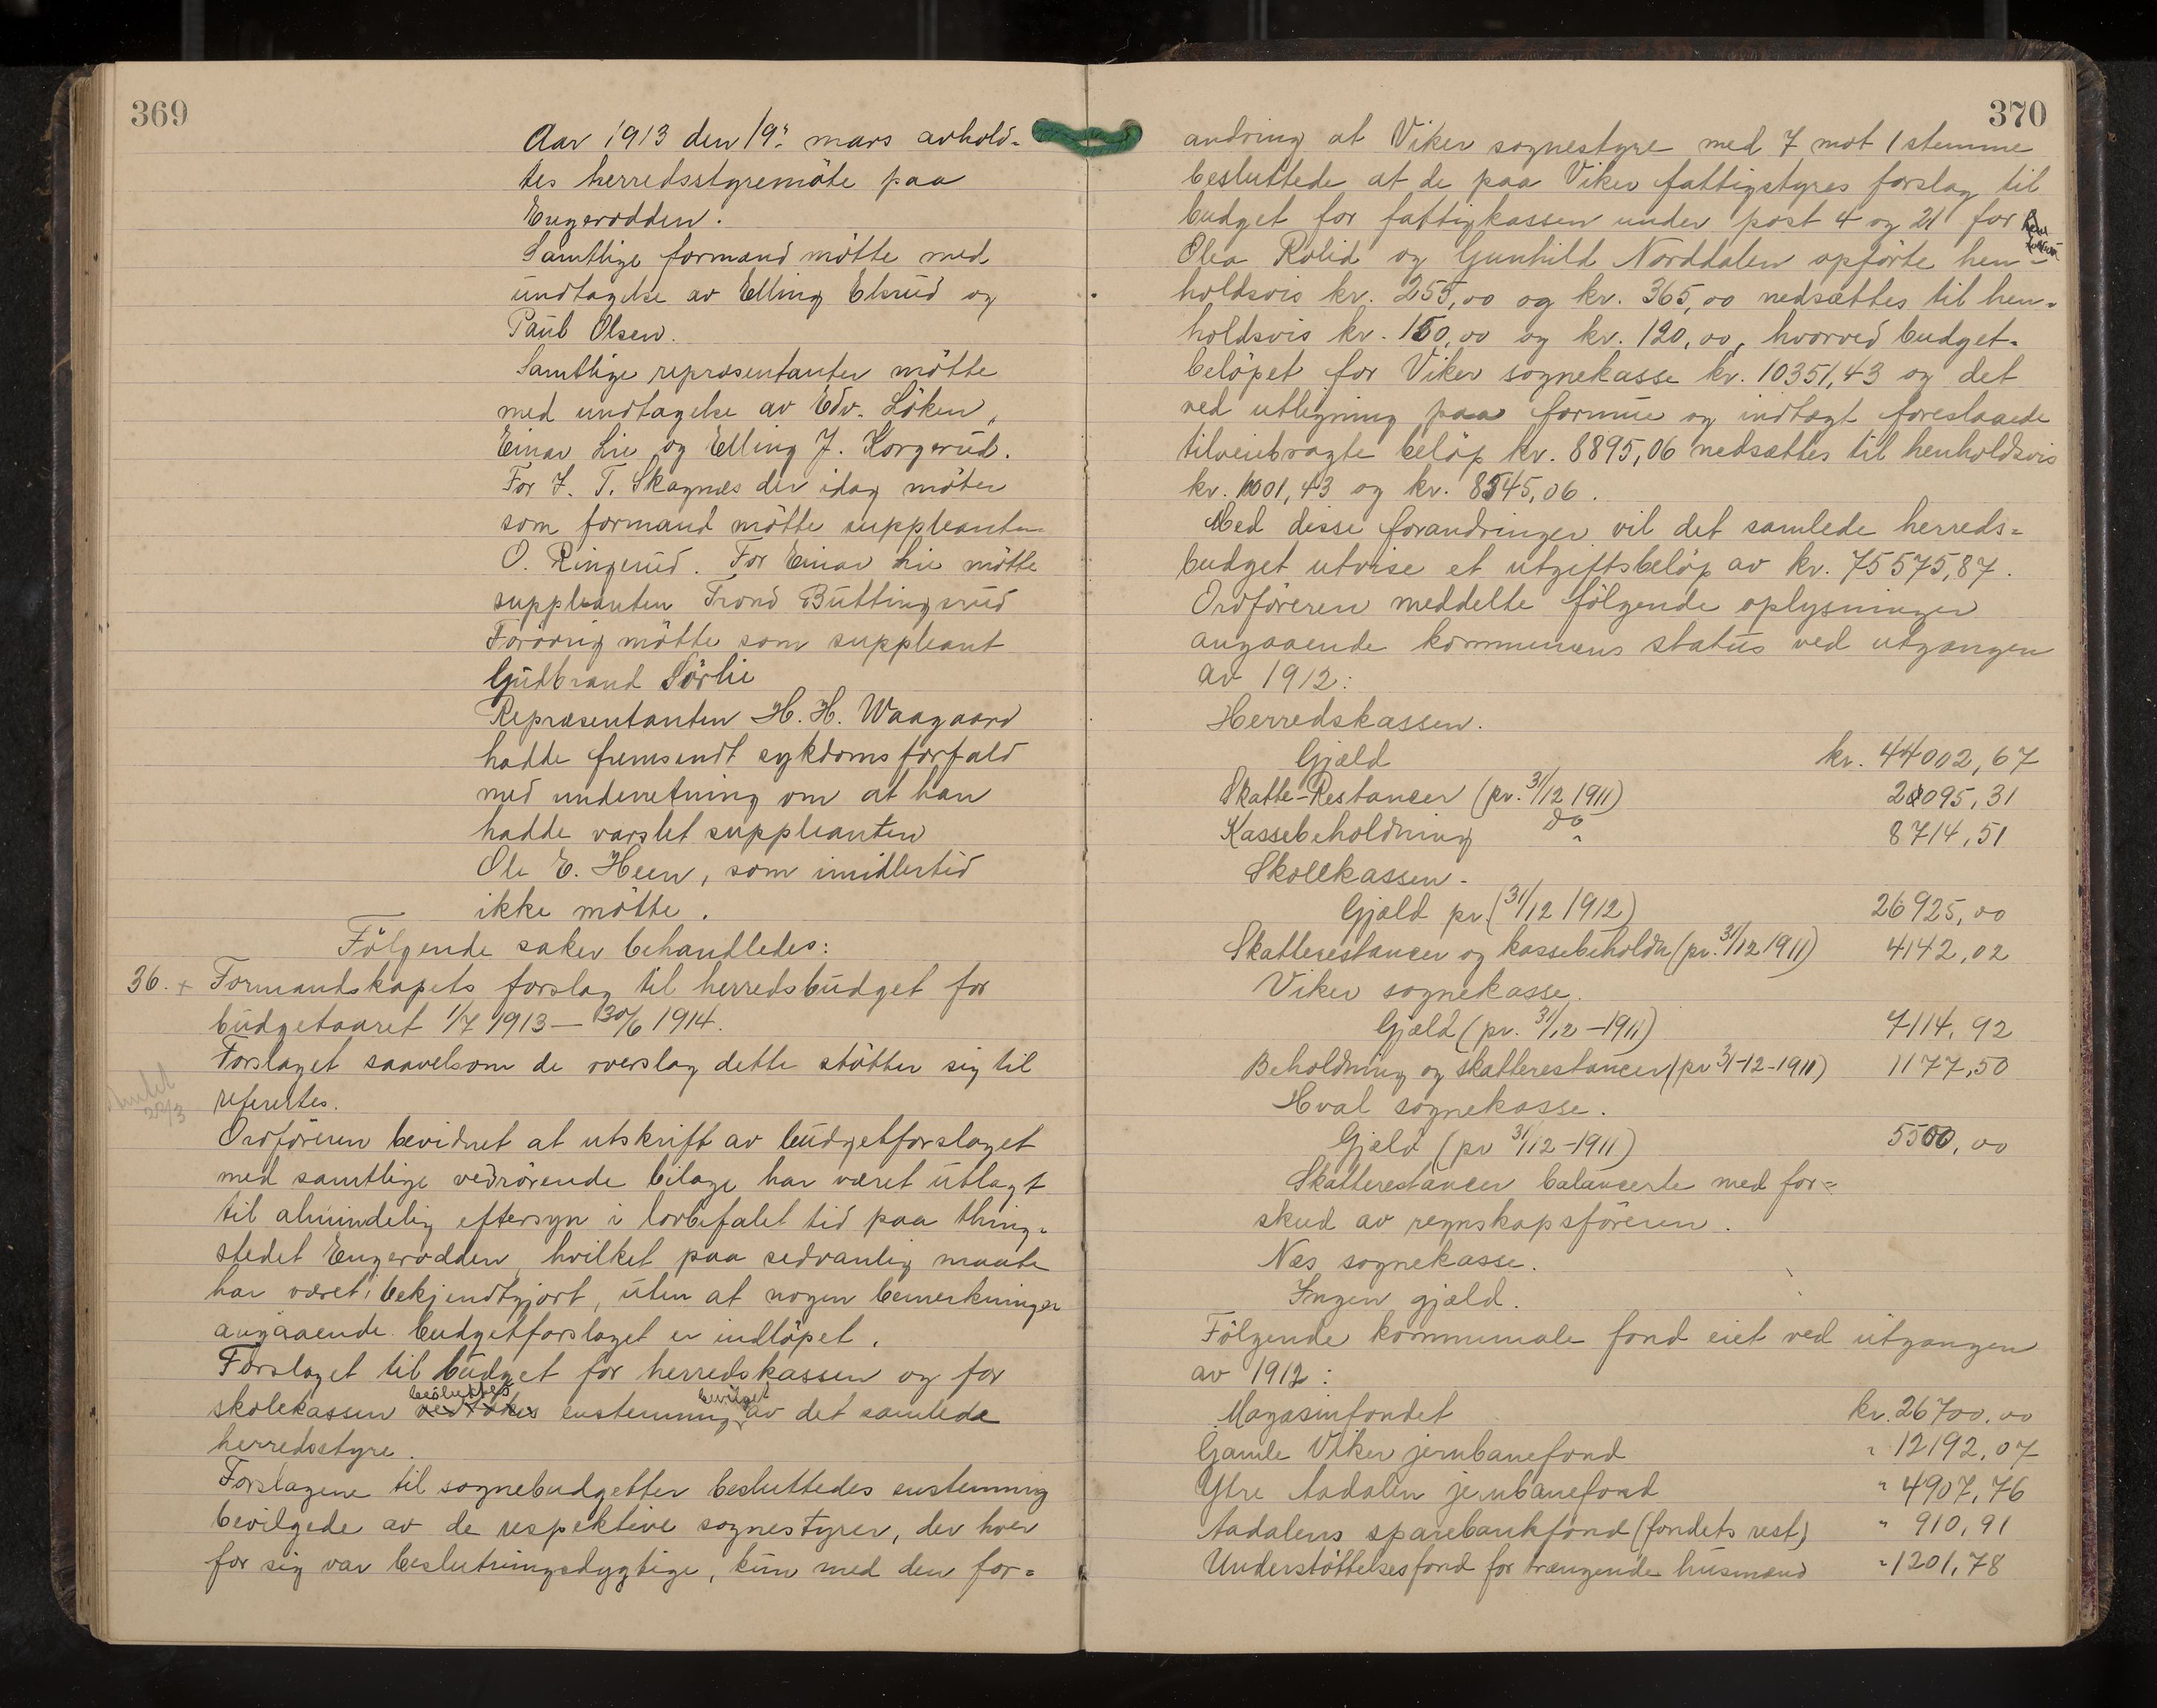 369
Aar 1913 den 19. mars avhold-
tes herredsstyremöte paa
Engerodden.
Samtlige formænd mötte med
undtagelse av Elling Elsrud og
Paul Olsen.
Samtlige repræsentanter mötte
med undtagelse av Edv. Löken,
Einar Lie og Elling J. Korgerud.
For J. T. Skagnæs der idag möter
som formand mötte suppleanten
O. Ringerud. For Einar Lie mötte
suppleanten Trond Buttingsrud
Forövrig mötte som suppleant
Gudbrand Sörlie
Repræsentanten H. H. Waagaard
hadde fremsendt sykdomsforfald
med underretning om at han
hadde varslet suppleanten
Ole E. Heen, som imidlertid
ikke mötte.
Fölgende saker behandledes:
36. + Formandskapets forslag til herredsbudget for
budgetaaret 1/7 1913 — 30/6 1914.
Forslaget saavelsom de overslag dette stötter sig til
referertes.
22/3
Ordföreren bevidnet at utskrift av budgetforslaget
med samtlige vedrörende bilage har været utlagt
til almindelig eftersyn i lovbefalet tid paa thing-
stedet Engerodden, hvilket paa sedvanlig maate
har været bekjendtgjort, uten at nogen bemerkninger
angaaende budgetforslaget er indlöpet.
Forslaget til budget for herredskassen og for
besluttes bevilget
skolekassen vedtokes enstemmig av det samlede
herredsstyre.
Forslagene til sognebudgetter besluttedes enstemmig
bevilgede av de respektive sognestyrer, der hver
for sig var beslutningsdygtige, kun med den for-
370
andring at Viker sognestyre med 7 mot 1 stemme
besluttede at de paa Viker fattigstyres forslag til
budget for fattigkassen under post 4 og 21 for
Olea Rolid og Gunhild Norddalen opförte hen-
holdsvis kr. 255,00 og kr. 365,00 nedsættes til hen-
holdsvis kr. 150,00 og kr. 120,00, hvorved budget-
belöpet for Viker sognekasse kr. 10351,43 og det
ved utligning paa formue og indtægt foreslaaede
tilveiebragte belöp kr. 8895,06 nedsættes til henholdsvis
kr. 10001,43 og kr. 8545,06.
Med disse forandringer vil det samlede herreds-
budget utvise et utgiftsbelöp av kr. 75575,87.
Ordföreren meddelte fölgende oplysninger
angaaende kommunens status ved utgangen
av 1912:
Herredskassen.
Gjæld kr. 44002,67
Skatte-Restancer (pr. 31/12 1911) 095,31
Kassebeholdning do " 8714,51
Skolekassen.
Gjæld pr. (31/12 1912) 26925,00
Skatterestancer og kassebeholdn (pr. 31/12 1911) 4142,02
Viker sognekasse.
Gjæld (pr. 31/12 - 1911) 7114,92
Beholdning og skatterestancer (pr 31-12-1911) 1177,50
Hval sognekasse.
Gjæld (pr 31/12 - 1911) 5500,00
Skatterestancer balancerte med for-
skud av regnskapsföreren.
Næs sognekasse.
Ingen gjæld.
Fölgende kommunale fond eiet ved utgangen
av 1912:
Magasinfondet kr. 26700,00
Gamle Viker jernbanefond " 12192,07
Ytre Aadalen jernbanefond " 4907,76
Aadalens sparebankfond (fondets rest) " 910,91
Understöttelsesfond for trængende husmænd " 1201,78